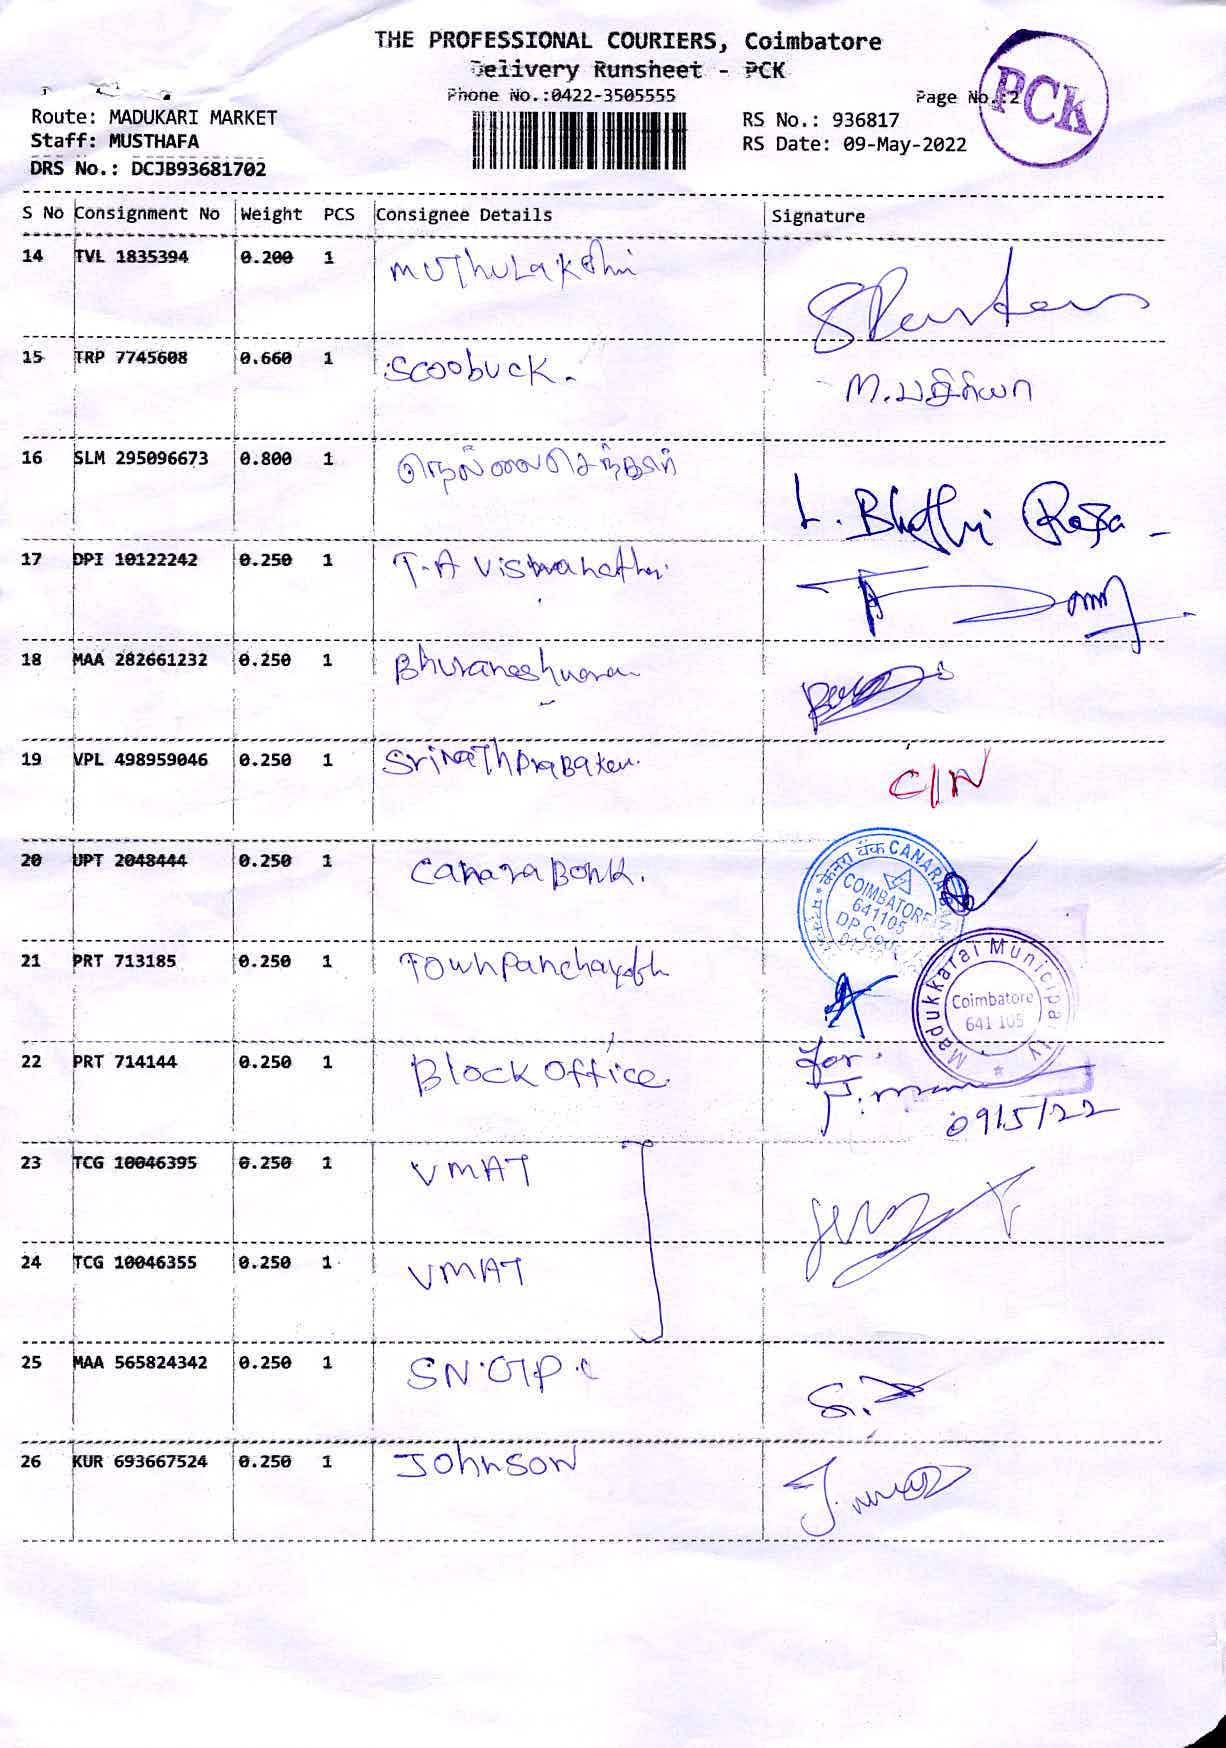 THE PROFESSIONAL COURIERS, Coimbatore
Delivery Runsheet - PCK
Phone No.:0422-3505555
Page No.:2
PCK
Route: MADUKARI MARKET
RS No.: 936817
Staff: MUSTHAFA
RS Date: 09-May-2022
DRS No.: DCJB93681702
S No Consignment No Weight PCS Consignee Details Signature
14 TVL 1835394 0.200 1 MUThuLakshmi
15 TRP 7745608 0.660 1 Scoobuck.
16 SLM 295096673 0.800 1
L. Bhathi Raja
17 DPI 10122242 0.250 1 T.A Viswanathan
18 MAA 282661232 0.250 1 Bhuvaneshwara
19 VPL 498959046 0.250 1 Srinath Prabakar. C/N
20 UPT 2048444 0.250 1 Canara Bank.
केनरा बैंक CANARA BANK
COIMBATORE
641105
DP Code
21 PRT 713185 0.250 1 Town Panchayath
Madukkarai Municipality
Coimbatore
641 105
22 PRT 714144 0.250 1 Block Office for.
09/5/22
23 TCG 10046395 0.250 1 VMAT
24 TCG 10046355 0.250 1 VMAT
25 MAA 565824342 0.250 1
26 KUR 693667524 0.250 1 Johnson